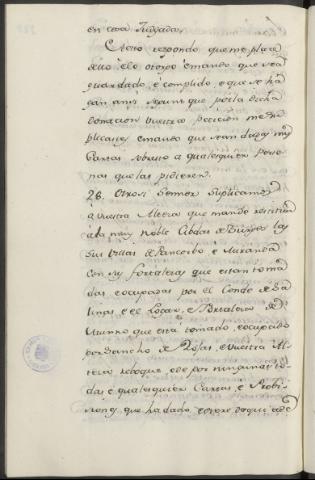 en essa Juzgados
Esto respondo que me place
dello é lo otorgo é mando que sea
guardado, é complido, é que se ha-
gan ansi segun que por la dicha
vuestra peticion me su-
plicasteys é mando que sean dadas mys
Cartas sobre ello a qualesquier perso-
nas que las pidieren.
28. Otrosi Sennor Suplicamos
a vuestra Alteza que mande restituir
a la muy noble Cibdad de Burgos las
sus villas de Pancorbo é Miranda
con sus fortalezas que estan toma-
das é ocupadas por el Conde de Sa-
linas, é el Logar, é Fortaleza de
Munno que está tomado, é ocupado
por Sancho de Rojas, é vuestra Al-
teza reboque, é dé por ningunas to-
das é qualesquier Cartas é Probi-
siones, que ha dado, é diere de aqui ade